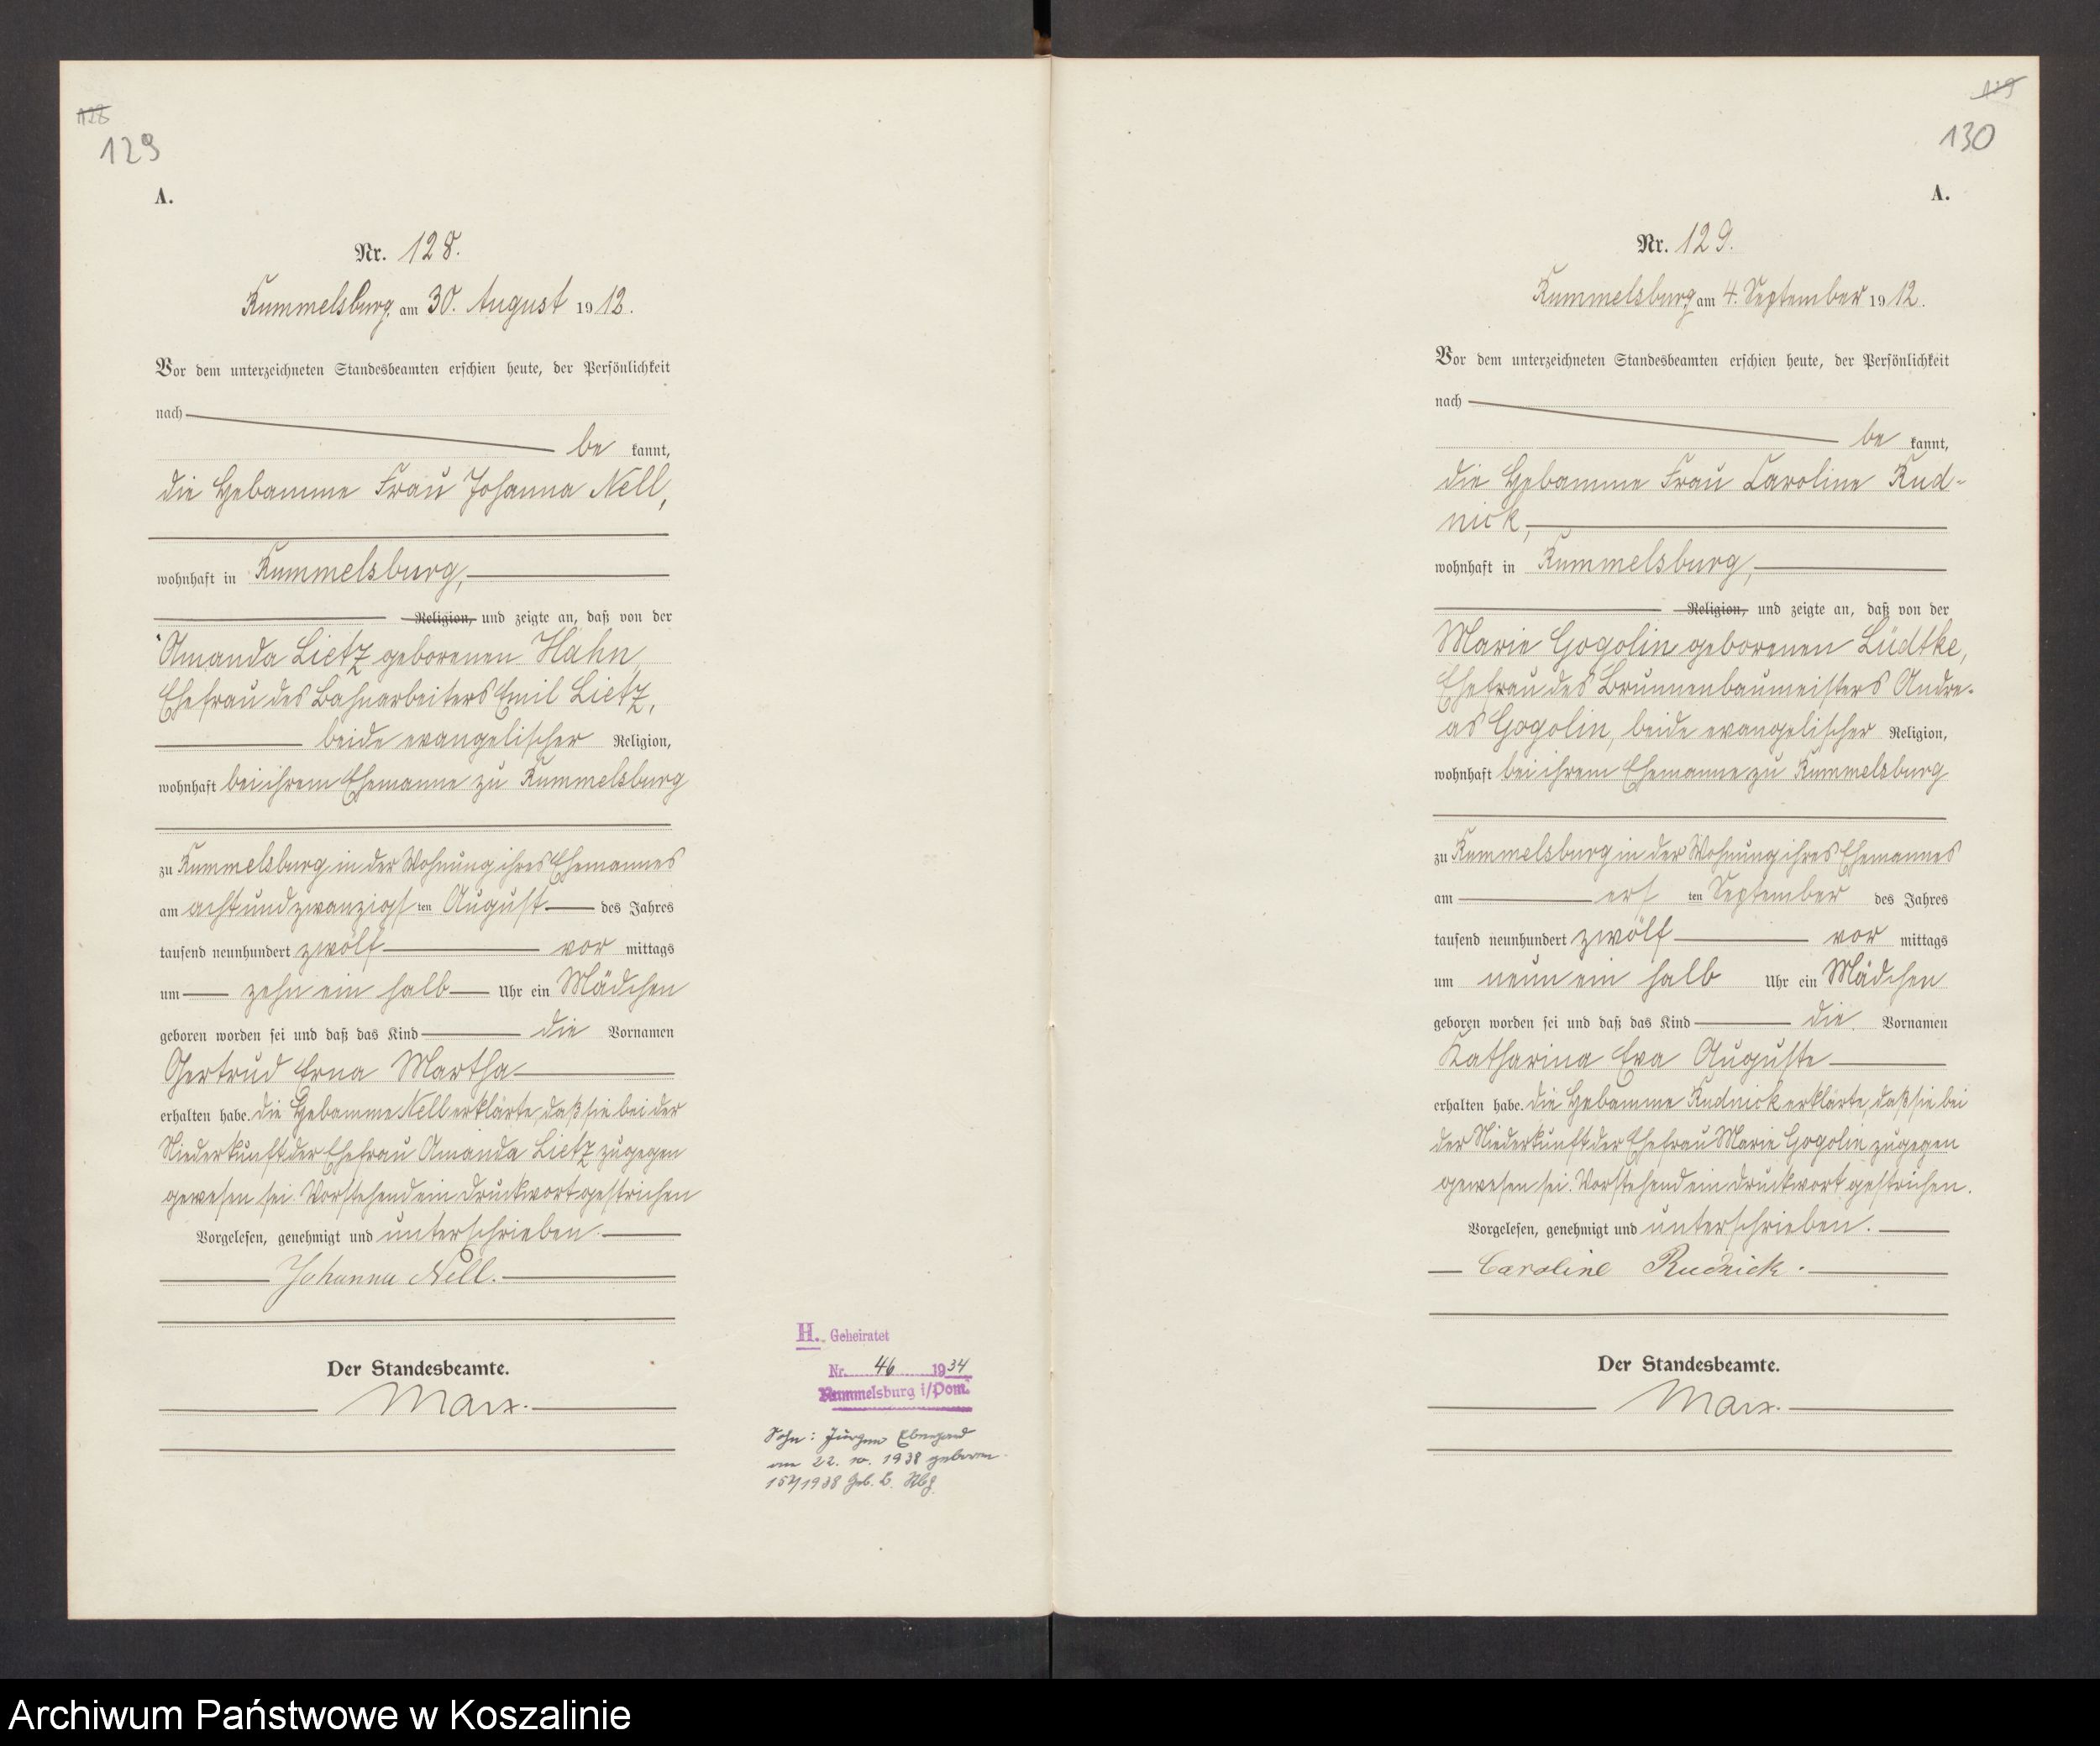 128
129
A.
Nr. 128.
Rummelsburg, am 30. August 1912.
Vor dem unterzeichneten Standesbeamten erschien heute, der Persönlichkeit
nach
be kannt,
die Hebamme Frau Johanna Nell,
wohnhaft in Rummelsburg,
Religion, und zeigte an, daß von der
Amanda Lietz geborenen Hahn,
Ehefrau des Bahnarbeiters Emil Lietz,
beide evangelischer Religion,
wohnhaft bei ihrem Ehemanne zu Rummelsburg
zu Rummelsburg in der Wohnung ihres Ehemannes
am achtundzwanzigs ten August des Jahres
tausend neunhundert zwölf vor mittags
um zehn ein halb Uhr ein Mädchen
geboren worden sei und daß das Kind die Vornamen
Gertrud Erna Martha
erhalten habe. Die Hebamme Nell erklärte, daß sie bei der
Niederkunft der Ehefrau Amanda Lietz zugegen
gewesen sei. Vorstehend ein Druckwort gestrichen
Vorgelesen, genehmigt und unterschrieben.
Johanna Nell.
Der Standesbeamte.
Marx.
H. Geheiratet
Nr. 46 1934
Rummelsburg i/Pom.
Sohn: Jürgen
am 22. 10. 1938 geboren
1938 Geb. B. Rbg
129
130
A.
Nr. 129.
Rummelsburg am 4. September 1912.
Vor dem unterzeichneten Standesbeamten erschien heute, der Persönlichkeit
nach
be kannt,
die Hebamme Frau Caroline Rud-
nick,
wohnhaft in Rummelsburg,
Religion, und zeigte an, daß von der
Marie Gogolin geborenen Lüdtke,
Ehefrau des Brunnenbaumeisters Andre-
as Gogolin, beide evangelischer Religion,
wohnhaft bei ihrem Ehemanne zu Rummelsburg
zu Rummelsburg in der Wohnung ihres Ehemannes
am ers ten September des Jahres
tausend neunhundert zwölf vor mittags
um neun ein halb Uhr ein Mädchen
geboren worden sei und daß das Kind die Vornamen
Katharina Eva Auguste
erhalten habe. Die Hebamme Rudnick erklärte, daß sie bei
der Niederkunft der Ehefrau Marie Gogolin zugegen
gewesen sei. Vorstehend ein Druckwort gestrichen.
Vorgelesen, genehmigt und unterschrieben.
Caroline Rudnick.
Der Standesbeamte.
Marx.
Archiwum Państwowe w Koszalinie